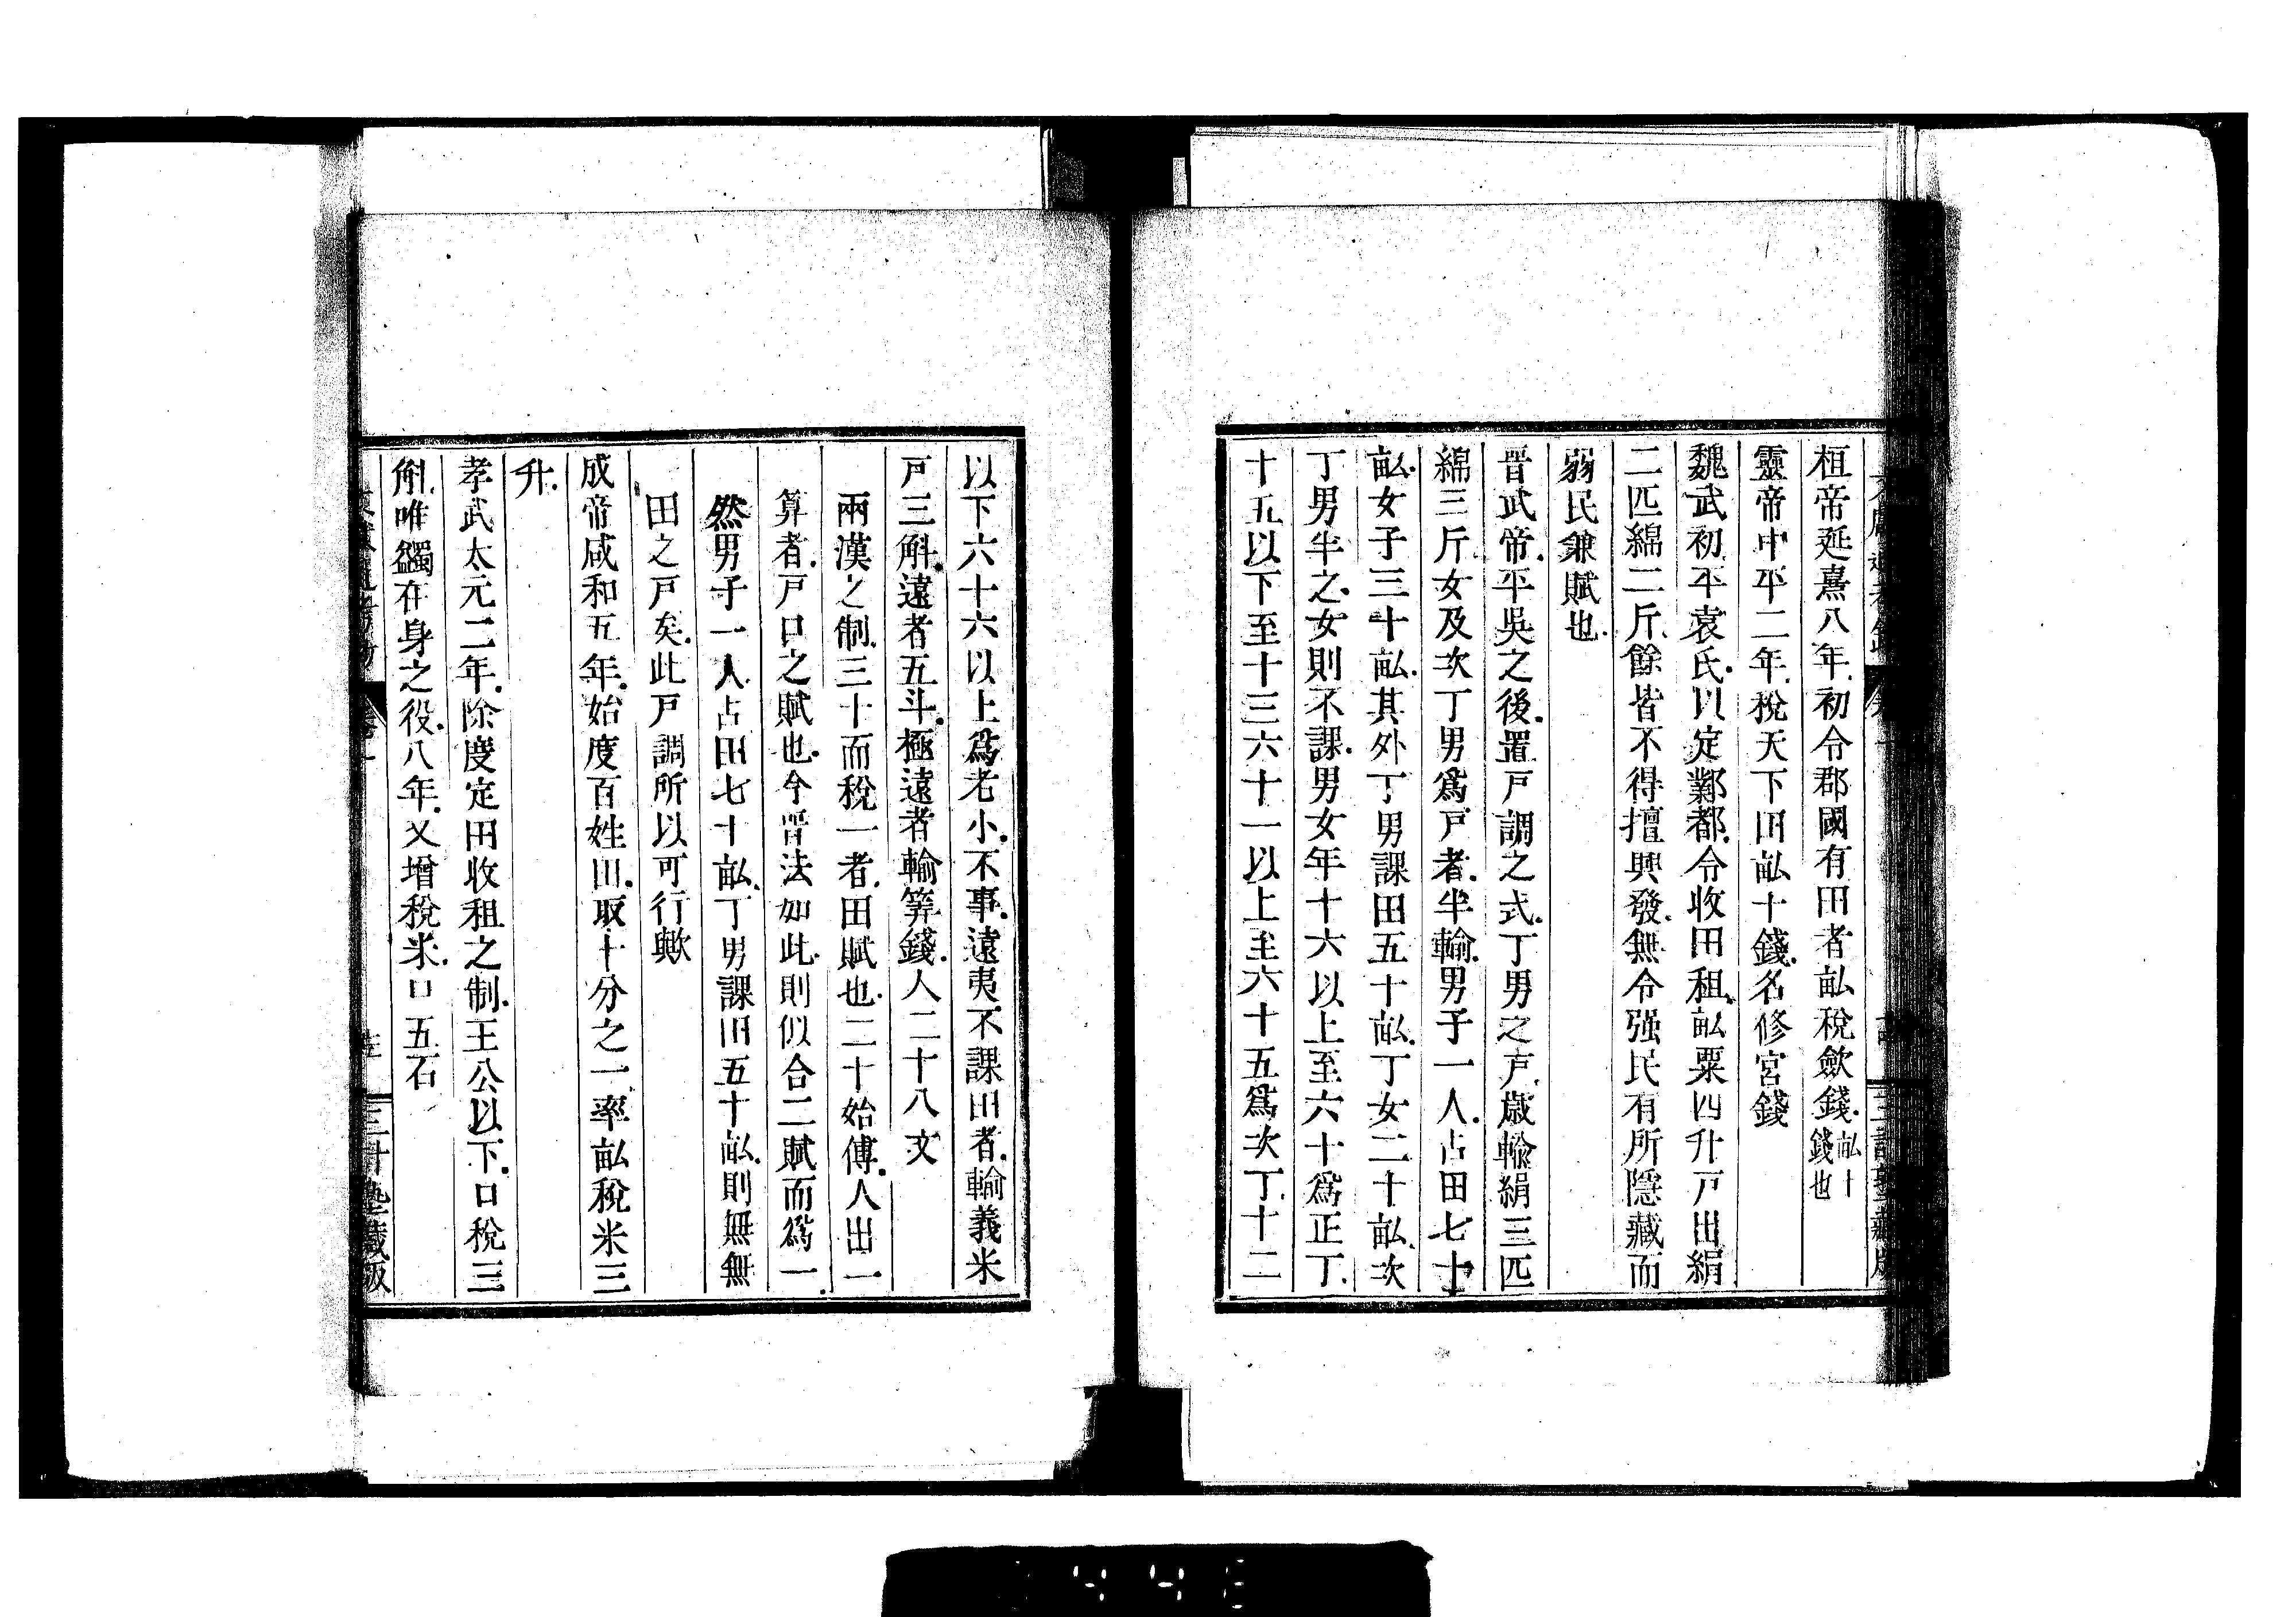 桓帝延熹八年初令郡國有田者畝稅斂錢畝十錢也
靈帝中平二年稅天下田畝十錢名修宮錢
魏武初平袁氏以定鄴都令收田租畝粟四升戸出絹
二匹綿二斤餘皆不得擅興發無令强民有所隱藏而
弱民兼賦也
晉武帝平吳之後置戸調之式丁男之戸歲輸絹三匹
綿三斤女及次丁男爲戸者半輸男子一人占田七十
畝女子三十畝其外丁男課田五十畝丁女二十畝次
丁男半之女則不課男女年十六以上至六十爲正丁
十五以下至十三六十一以上至六十五爲次丁十二
以下六十六以上爲老小不事遠夷不課田者輸義米
戸三斛遠者五斗極遠者輸筭錢人二十八文
兩漢之制三十而稅一者田賦也二十始傅人出一
算者戸口之賦也今晉法如此則似合二賦而爲一
然男子一人占田七十畝丁男課田五十畝則無無
田之戸矣此戸調所以可行歟
成帝咸和五年始度百姓田取十分之一率畝稅米三
升
孝武太元二年除度定田收租之制王公以下口稅三
斛唯蠲在身之役八年又增稅米口五石
藏版